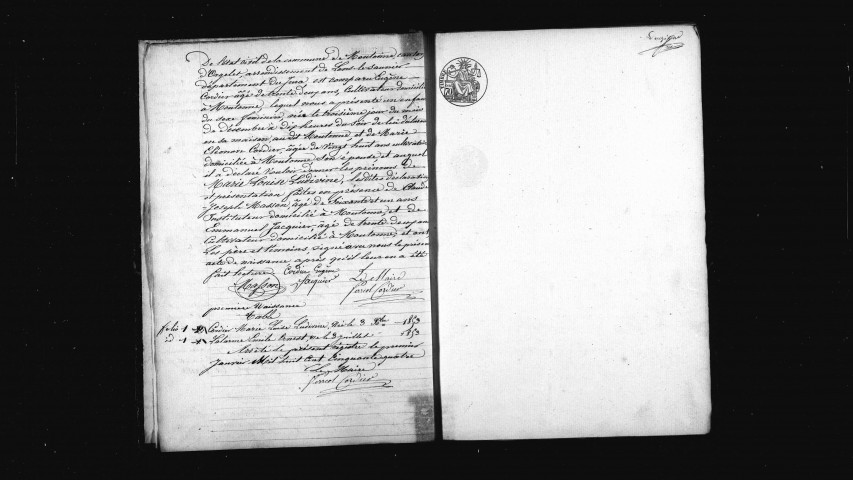 De l'état civil de la commune de Moutonne, canton
d'Orgelet, arrondissement de Lons-le-Saunier
département du Jura est comparu Eugène
Cordier âgé de trente deux ans, Cultivateur domicilié
à Moutonne, lequel nous a présenté un enfant
du sexe féminin née le troisième jour du mois
de Décembre à dix heures du soir de lui déclarant
en sa maison, audit Moutonne et de Marie
Cordier, âgée de vingt huit ans
domiciliée à Moutonne son épouse, et auquel
il a déclaré vouloir donner les prénoms de
Marie Louise Ludivine, lesdites déclaration
et présentation faites en présence de Claude
Joseph Masson, âgé de soixante et un ans
Instituteur domicilié à Moutonne, et de
Emmanuel Jacquier, âgé de trente deux ans
Cultivateur domicilié à Moutonne, et ont
Les père et témoins, signé avec nous le présent
acte de naissance après qu'il leur en a été
fait lecture Cordier Eugène
Masson Jacquier Le Maire
Cordier
première Naissance
Table
folio 1 Cordier Marie Louise Ludivine, Née le 3 Xbre 1853
id 1 le 3 juillet 1853
Arrêté le présent registre le premier
Janvier Mil huit cent cinquante quatre
Le Maire
Cordier